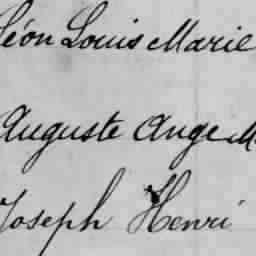 Léon Louis Marie
Auguste Ange M
Joseph Henri